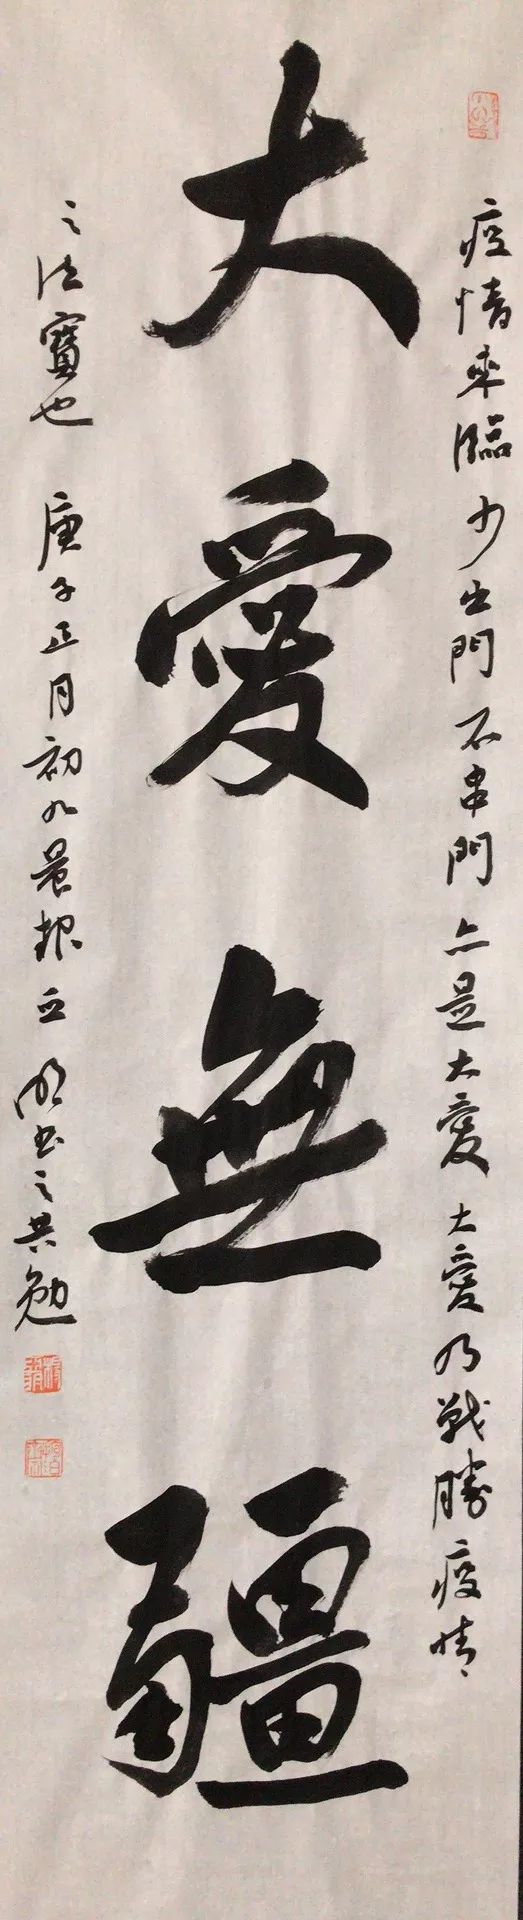 大愛無疆
疫情來臨少出門不串門亦是大愛大愛乃戰勝疫情
之法寶也 庚子正月初九晨根云明書之共勉